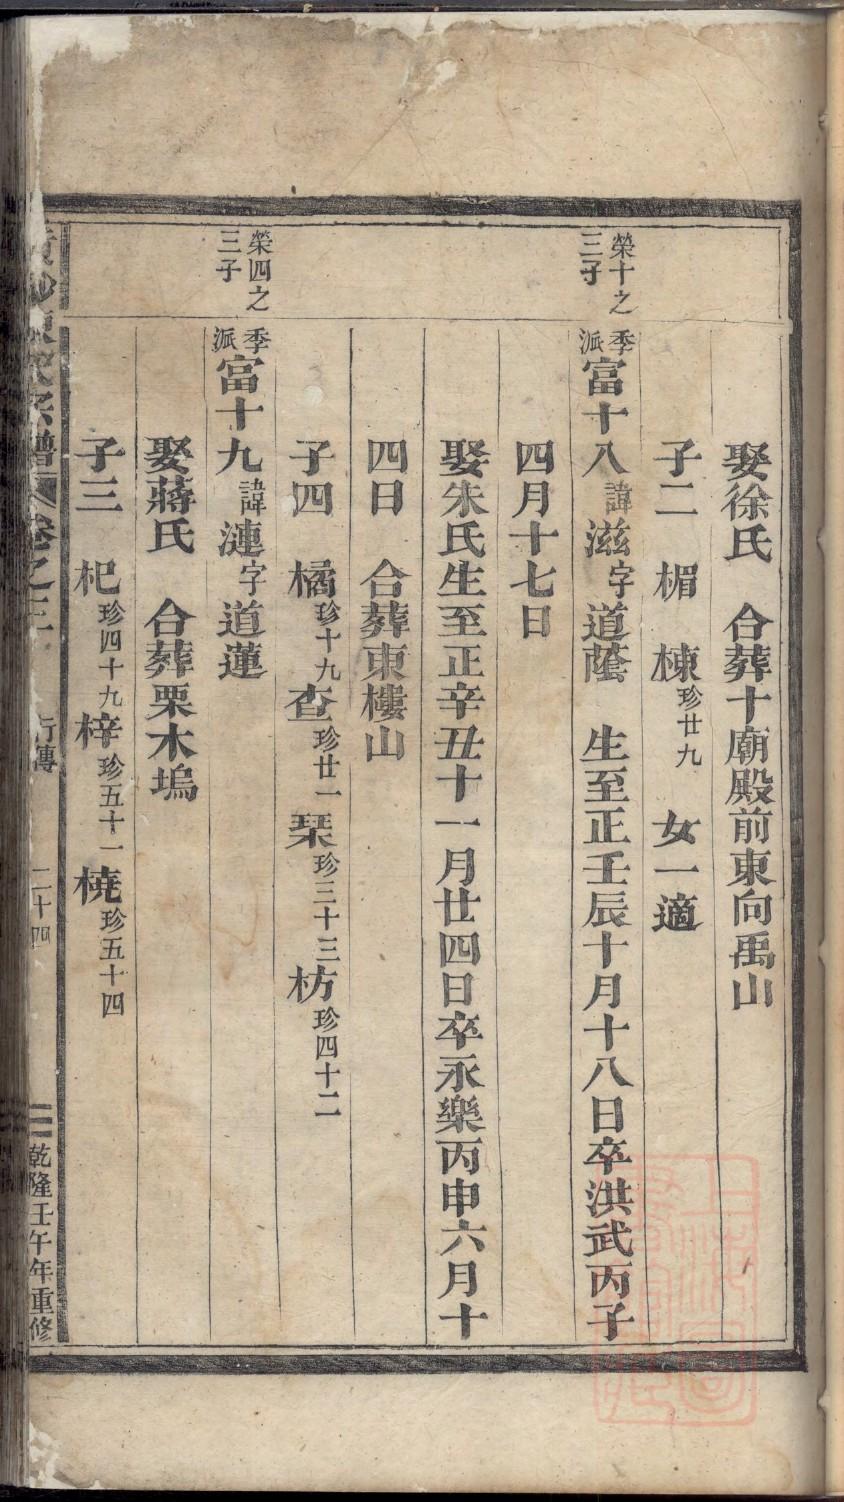 娶徐氏　合葬十廟殿前東向禹山
子二　楣　棟珍廿九　女一適
榮十之三子
季派富十八諱滋字道蔭　生至正壬辰十月十八日卒洪武丙子
四月十七日
娶朱氏生至正辛丑十一月廿四日卒永樂丙申六月十
四日　合葬東樓山
子四　橘珍十九查珍廿一栞珍三十三枋珍四十二
榮四之三子
季派富十九諱漣字道蓮
娶蔣氏　合葬栗木塢
子三　杞珍四十九梓珍五十一橈珍五十四
氏宗譜　卷之三　行傳　二十四　乾隆壬午年重修